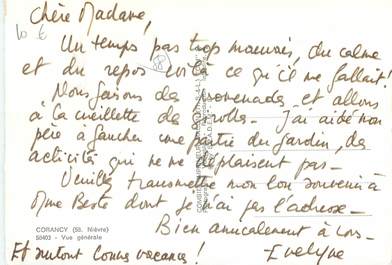 Chère Madame,
10 €
Un temps pas trop mauvais, du calme
et du repos voilà ce qu'il me fallait.
58
Nous faisons des promenades et allons
à la cueillette des girolles - J'ai aidé mon
père à faucher une partie du jardin, des
activités qui ne me déplaisent pas -
Veuillez transmettre mon bon souvenir à
Mme Beste dont je n'ai pas l'adresse -
CORANCY (58. Nièvre)
58403 - Vue générale
Bien amicalement à vous -
Et surtout bonnes vacances !
Evelyne